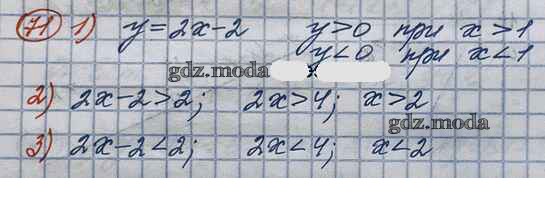 71 1) y = 2x-2 y>0 при x>1
y<0 при x<1
gdz.moda
2) 2x-2>2; 2x>4; x>2
gdz.moda
3) 2x-2<2; 2x<4; x<2